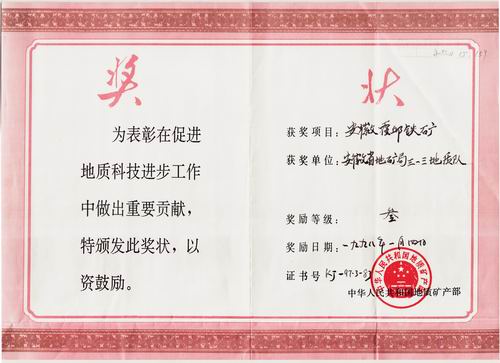 奖状
为表彰在促进
地质科技进步工作
中做出重要贡献，
特颁发此奖状，以
资鼓励。
获奖项目：安徽霍邱铁矿
获奖单位：安徽省地矿局三一三地质队
奖励等级：叁
奖励日期：一九九八年一月四日
证书号 KJ-97-3-83
中华人民共和国地质矿产部
中华人民共和国地质矿产部